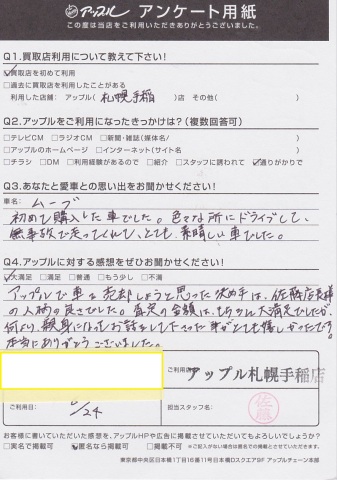 アップル アンケート用紙
この度は当店をご利用いただきありがとうございました。
Q1.買取店利用について教えて下さい!
☑買取店を初めて利用
□過去に買取店を利用したことがある
利用した店舗: アップル( 札幌手稲 )店 その他( )
Q2.アップルをご利用になったきっかけは?(複数回答可)
□テレビCM □ラジオCM □新聞・雑誌(媒体名/ )
□アップルのホームページ □インターネット(サイト名 )
□チラシ □DM □利用経験があるので □紹介 □スタッフに誘われて ☑通りがかりで
Q3.あなたと愛車との思い出をお聞かせください!
車名: ムーブ
初めて購入した車でした。色々な所にドライブして、
無事故で走ってくれて、とても、素晴しい車でした。
Q4.アップルに対する感想をぜひお聞かせください!
☑大満足 □満足 □普通 □もう少し □不満
アップルで車を売却しようと思った決め手は、佐藤店長様
の人柄の良さでした。査定の金額は、もちろん大満足でしたが、
何より、親身になってお話をして下さった事がとても嬉しかったです。
本当にありがとうございました。
ご利用店
アップル札幌手稲店
ご利用日
/24
担当スタッフ名:
佐藤
お客様に書いていただいた感想を、アップルHPや広告に掲載させていただいてもよろしいでしょうか?
□実名で掲載可 ☑匿名なら掲載可 □掲載不可 ※ご利用店名は匿名の場合でも記載させていただきます。
東京都中央区日本橋1丁目16番11号日本橋Dスクエア8F アップルチェーン本部